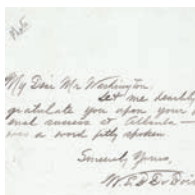 My Dear Mr. Washington:
Let me heartily
gratulate you upon your
nal success at Atlanta —
was a word fitly spoken
Sincerely Yours,
W. E. B. Du Bois